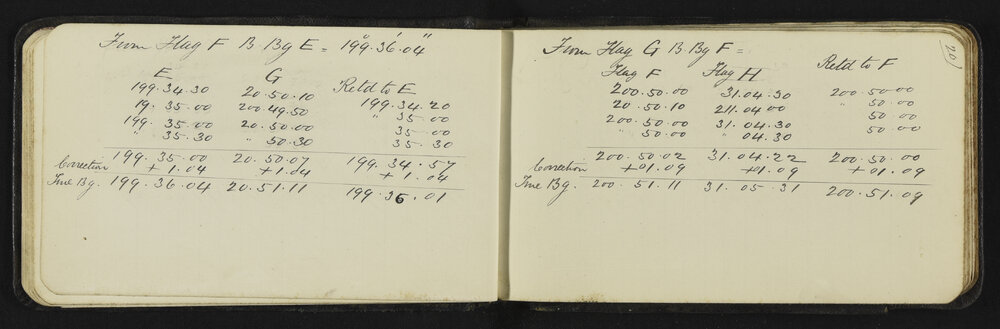 From Flag F B. Bg E = 199°.36'.04"
E G Retd to E
199.34.30 20.50.10 199.34.20
19. 35.00 200.49.50 " 35.00
199. 35.00 20.50.00 35.00
" 35.30 " 50.30 35.30
199.35.00 20.50.07 199.34.57
Correction +1.04 +1.04 +1.04
True Bg. 199.36.04 20.51.11 199.36.01
20
From Flag G B Bg F =
Flag F Flag H Retd to F
200.50.00 31.04.30 200.50.00
20.50.10 211.04.00 " 50.00
200.50.00 31.04.30 50.00
" 50.00 " 04.30 50.00
200.50.02 31.04.22 200.50.00
Correction +01.09 +01.09 +01.09
True Bg. 200.51.11 31.05.31 200.51.09